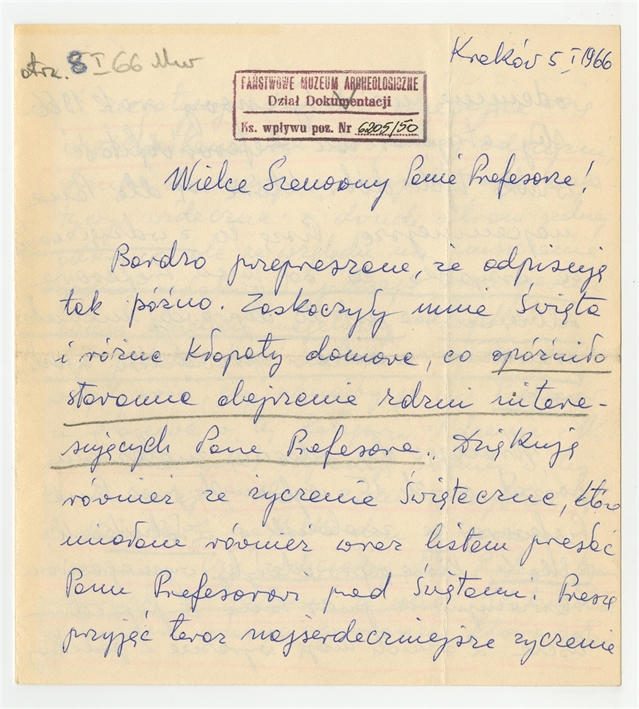 otrz. 8 I 66 Mw
Kraków 5 I 1966
PAŃSTWOWE MUZEUM ARCHEOLOGICZNE
Dział Dokumentacji
Ks. wpływu poz. Nr 6205/50
Wielce Szanowny Panie Profesorze!
Bardzo przepraszam, że odpisuję
tak późno. Zaskoczyły mnie Święta
i różne kłopoty domowe, co opóźniło
staranne obejrzenie rdzeni intere-
sujących Pana Profesora. Dziękuję
również za życzenia Świąteczne, które
miałam również wraz listem przesłać
Panu Profesorowi pod Świętami. Proszę
przyjąć teraz najserdeczniejsze życzenia